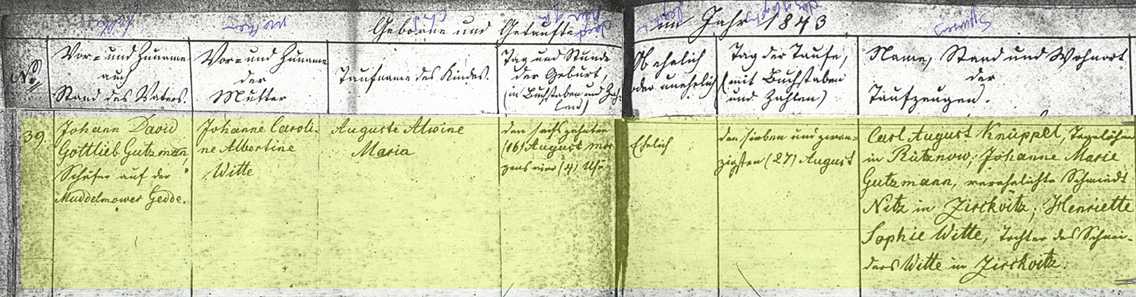 Geborne und Getaufte
im Jahr 1843
No
Vor- und Zuname
auch
Stand des Vaters.
Vor- und Zuname
der
Mutter
Taufname des Kindes.
Tag und Stunde
der Geburt,
(in Buchstaben und Zah-
len)
Ob ehelich
oder unehelich
Tag der Taufe,
(mit Buchstaben
und Zahlen)
Name, Stand und Wohnort
der
Taufzeugen.
39.
Johann David
Gottlieb Gutzman,
Schäfer auf der
Muddelmower Hedde.
Johanne Caroli-
ne Albertine
Witte
Auguste Alwine
Maria
den sechszehnten
(16) August mor-
gens vier (4) Uhr
Ehelich
den sieben und zwan-
zigsten (27) August
Carl August Knüppel, Tagelöhner
in Rütznow; Johanne Marie
Gutzmann, verehelichte Schmiedt
Netz in Zirckwitz; Henriette
Sophie Witte, Tochter des Schnei-
ders Witte in Zirckwitz.